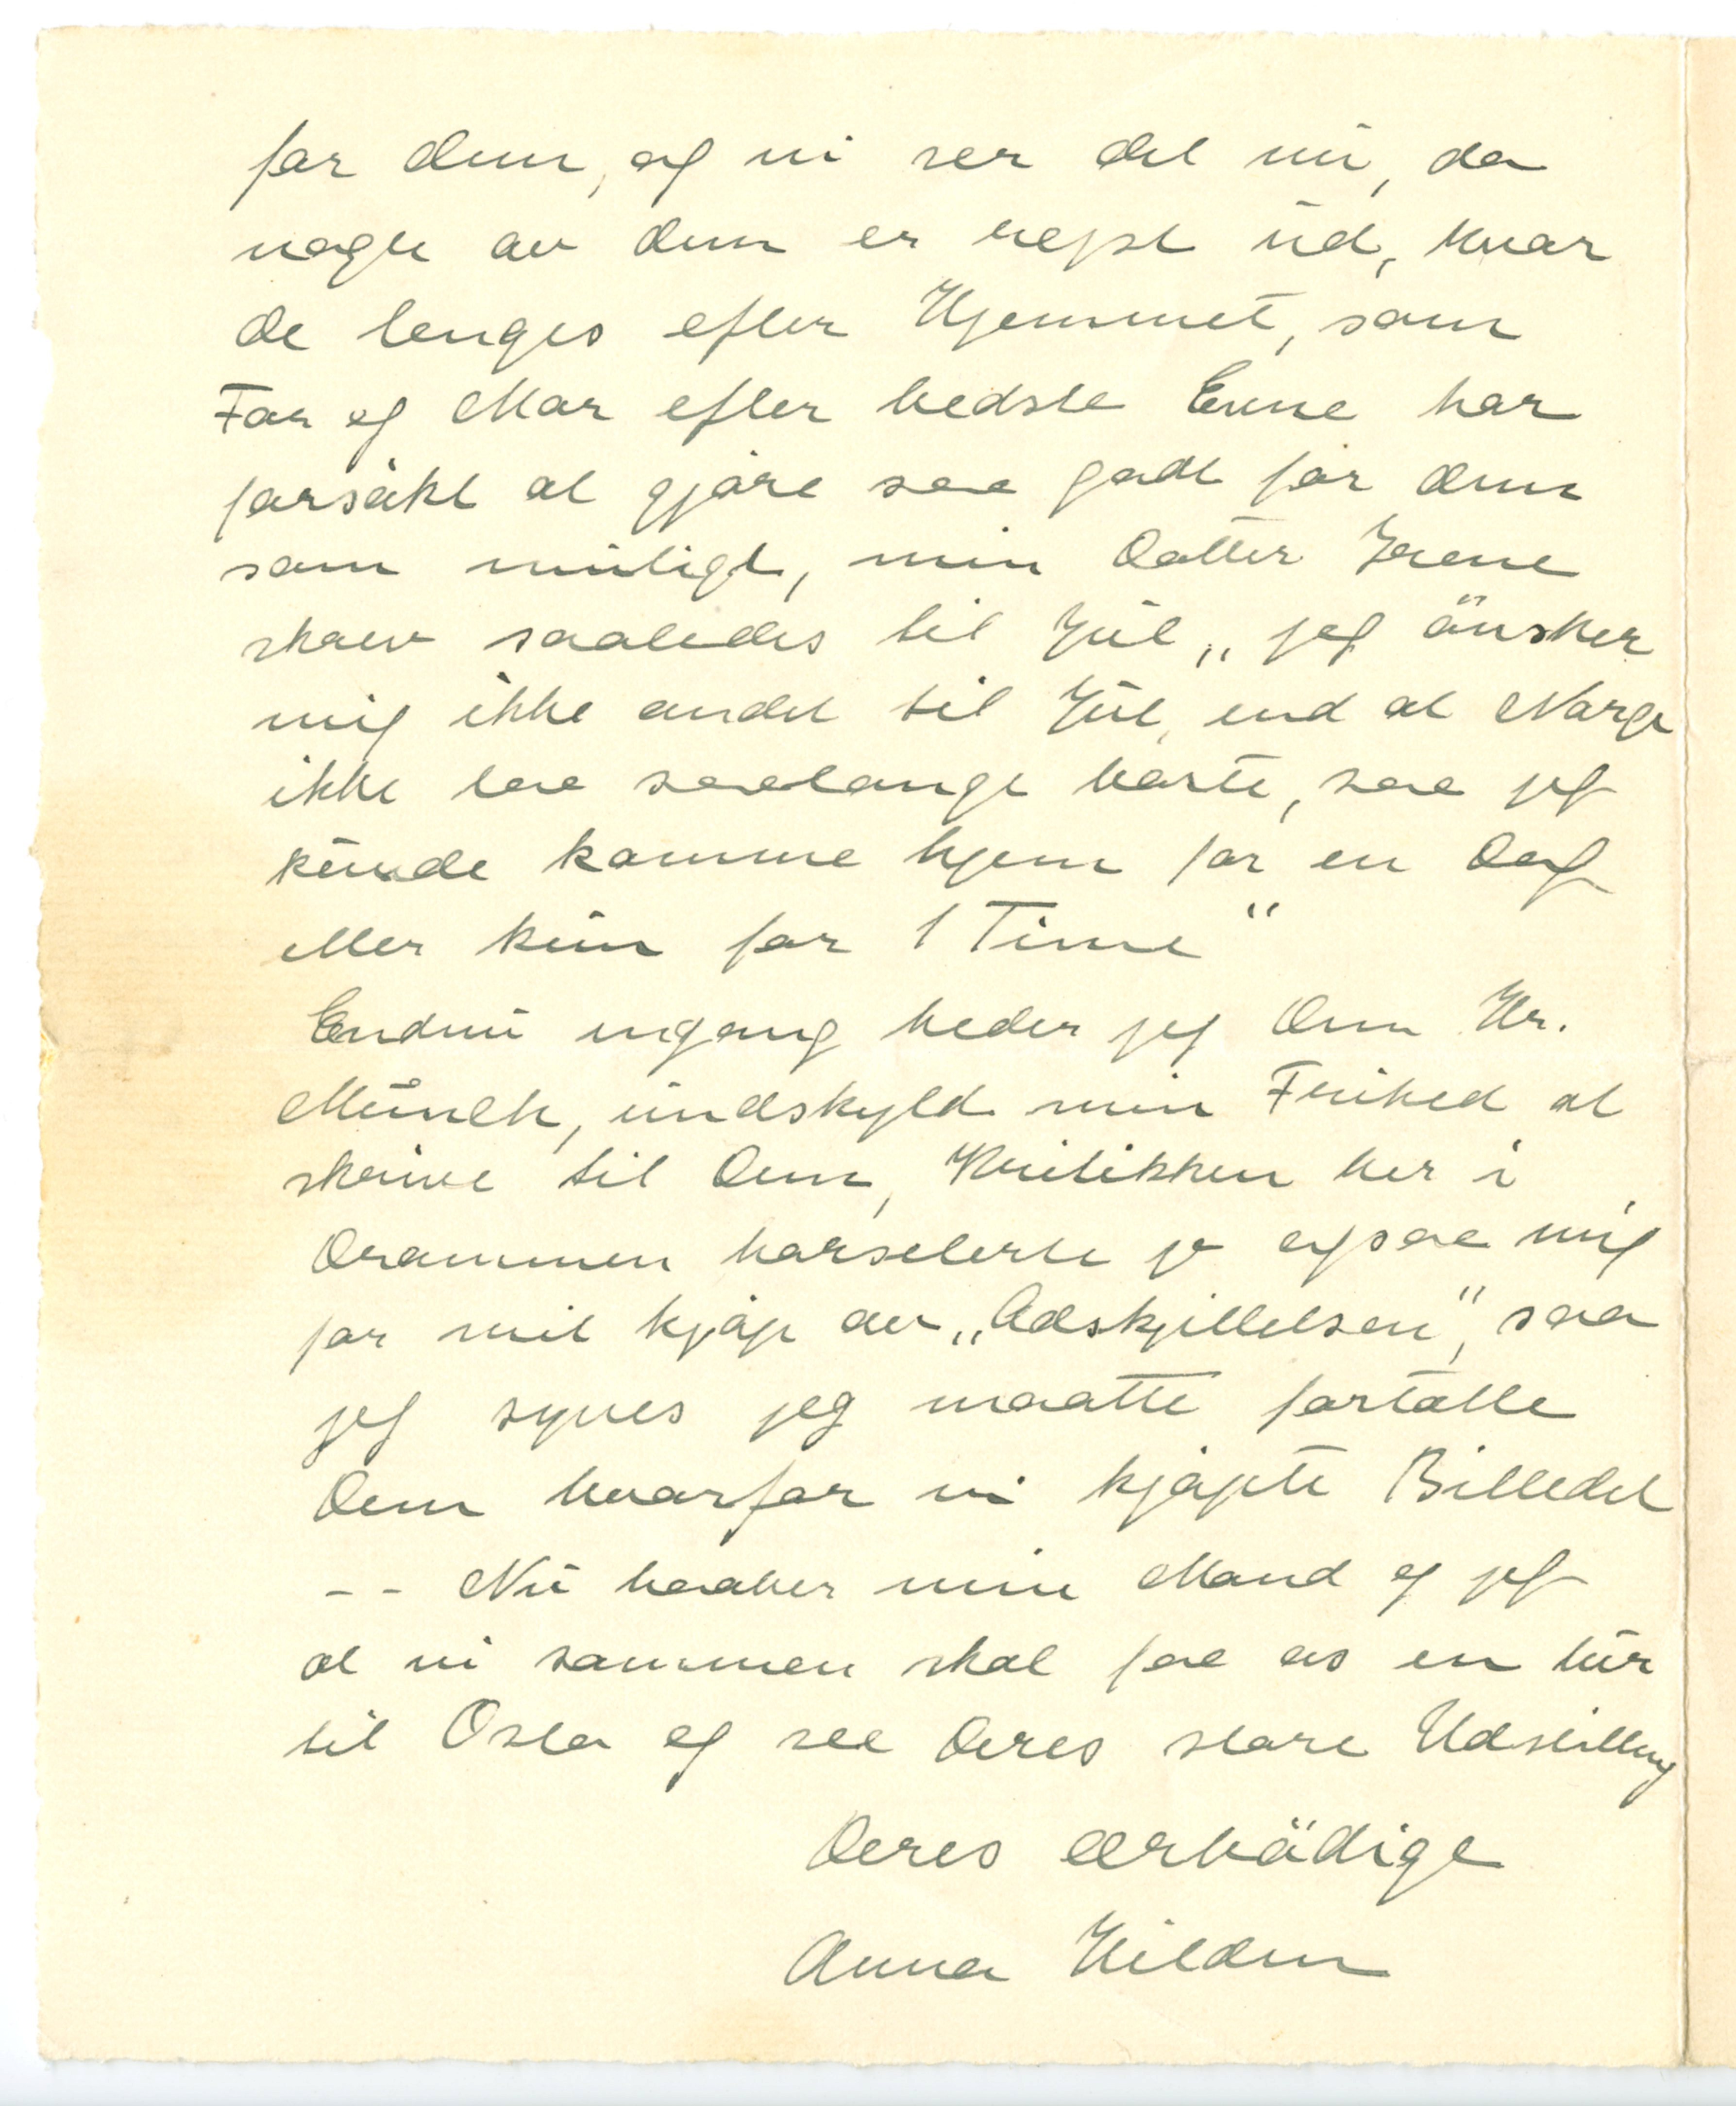 for dem, og vi ser det nu, da
nogle av dem er rejst ud, hvor
de lenges efter Hjemmet, som
Far og Mor efter bedste Evne har
forsøkt at gjøre saa godt for dem
som muligt, min Datter Irene
skrev saaledes til Jul „jeg önsker
mig ikke andet til Jul, end at Norge
ikke laa saalangt borte, saa jeg
kunde komme hjem for en Dag
eller kun for 1 Time“
Endnu engang beder jeg Dem Hr.
Munch, undskyld min Frihed at
skrive til Dem, Kritikken her i
Drammen harselerte jo ogsaa mig
for mit kjøp av „Adskjillelsen“, saa
jeg synes jeg maatte fortälle
Dem hvorfor vi kjøpte Billedet
-- Nu haaber min Mand og jeg
at vi sammen skal faa os en tur
til Oslo og see Deres store Udstilling
Deres ærbödige
Anna Hilden